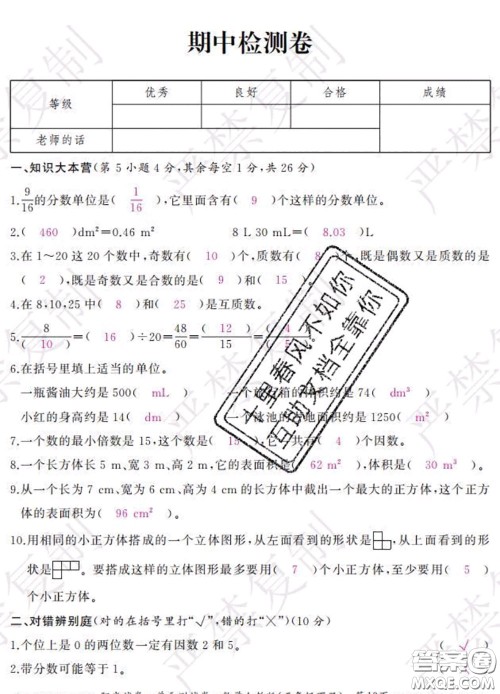 期中检测卷
等级 优秀 良好 合格 成绩
老师的话
一、知识大本营(第5小题4分,其余每空1分,共26分)
1.9/16的分数单位是( 1/16 ),它里面含有( 9 )个这样的分数单位。
2.( 460 )dm²=0.46 m² 8 L 30 mL=( 8.03 )L
3.在1~20这20个数中,奇数有( 10 )个,质数有( 8 )个,既是偶数又是质数的
是( 2 ),既是奇数又是合数的是( 9 )和( 15 )。
4.在8,10,25中( 8 )和( 25 )是互质数。
5.8/( 10 )=( 16 )÷20=48/60=( 12 )/15=( 4 )/5
6.在括号里填上适当的单位。
一瓶酱油大约是500( mL ) 一个 箱的体积约是74( dm³ )
小红的身高约是14( dm ) 一个 池的占地面积约是1250( m² )
7.一个数的最小倍数是15,这个数是( 15 ),它一共有( 4 )个因数。
8.一个长方体长5 m、宽3 m、高2 m,它的表面积是( 62 m² ),体积是( 30 m³ )。
9.从一个长为7 cm、宽为6 cm、高为4 cm的长方体中截出一个最大的正方体,这个正方
体的表面积为( 96 cm² )。
10.用相同的小正方体搭成的一个立体图形,从左面看到的形状是 ,从上面看到的形
状是 。要搭成这样的立体图形最多要用( 7 )个小正方体,至少要用( 5 )
个小正方体。
二、对错辨别庭(对的在括号里打“√”,错的打“×”)(10分)
1.个位上是0的两位数一定有因数2和5。 ( √ )
2.带分数可能等于1。
严禁复制
春风不如你
互助文档全靠你
答案圈
MXQE.COM